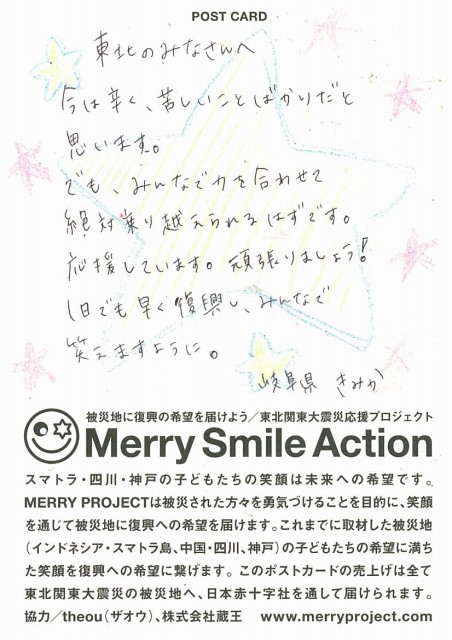 POST CARD
東北のみなさんへ
今は辛く、苦しいことばかりだと
思います。
でも、みんなで力を合わせて
絶対乗り越えられるはずです。
応援しています。頑張りましょう!
1日でも早く復興し、みんなで
笑えますように。
岐阜県 きみか
被災地に復興の希望を届けよう/東北関東大震災応援プロジェクト
Merry Smile Action
スマトラ・四川・神戸の子どもたちの笑顔は未来への希望です。
MERRY PROJECTは被災された方々を勇気づけることを目的に、笑顔
を通じて被災地に復興への希望を届けます。これまでに取材した被災地
(インドネシア・スマトラ島、中国・四川、神戸)の子どもたちの希望に満ち
た笑顔を復興への希望に繋げます。このポストカードの売上げは全て
東北関東大震災の被災地へ、日本赤十字社を通して届けられます。
協力/theou(ザオウ)、株式会社蔵王 www.merryproject.com